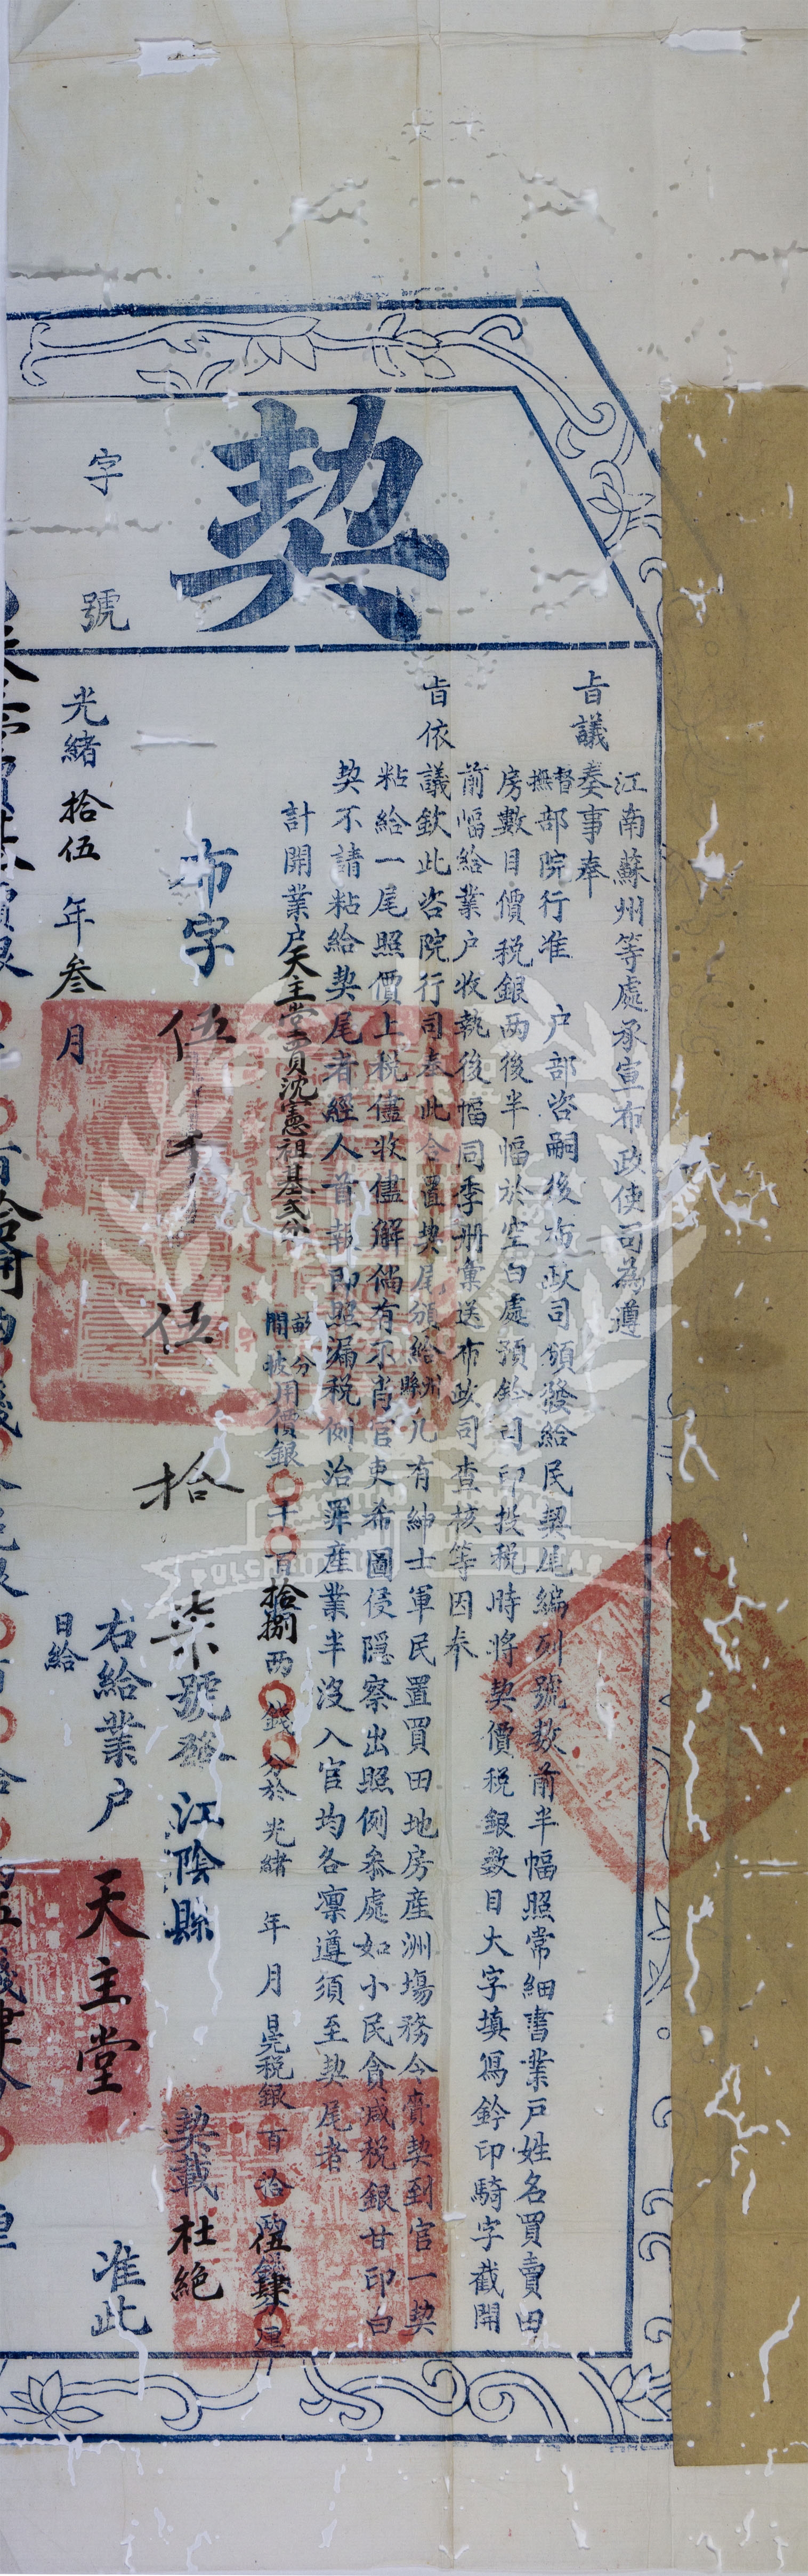 契
江南蘇州等處承宣布政使司為遵
旨議奏事奉
督撫部院行准 户部咨嗣後布政司頒發給民契尾編列號數前半幅照常細書業户姓名買賣田
房數目價稅銀兩後半幅於空白處預鈐司印投稅時將契價稅銀數目大字填寫鈐印騎字截開
前幅給業户收執後幅同季冊彙送布政司查核等因奉
旨依議欽此咨院行司奉此合置契尾頒給州縣凡有紳士軍民置買田地房產洲塲務令賣契到官一契
粘給一尾照價上稅儘收儘解倘有不肖官吏希圖侵隱察出照例叅處如小民貪減稅銀甘印白
契不請粘給契尾者經人首報即照漏稅例治罪產業半沒入官均各凛遵須至契尾者
計開業户天主堂買沈憲祖基式分 畝分間披用價銀〇千〇百拾捌兩〇錢〇分於光緒 年 月 日完稅銀 百 拾 伍錢肆分〇厘
布字伍千伍拾柒號發江陰縣 契載杜絕
右給業户天主堂 准此
字 號
光緒拾伍年叁月 日給